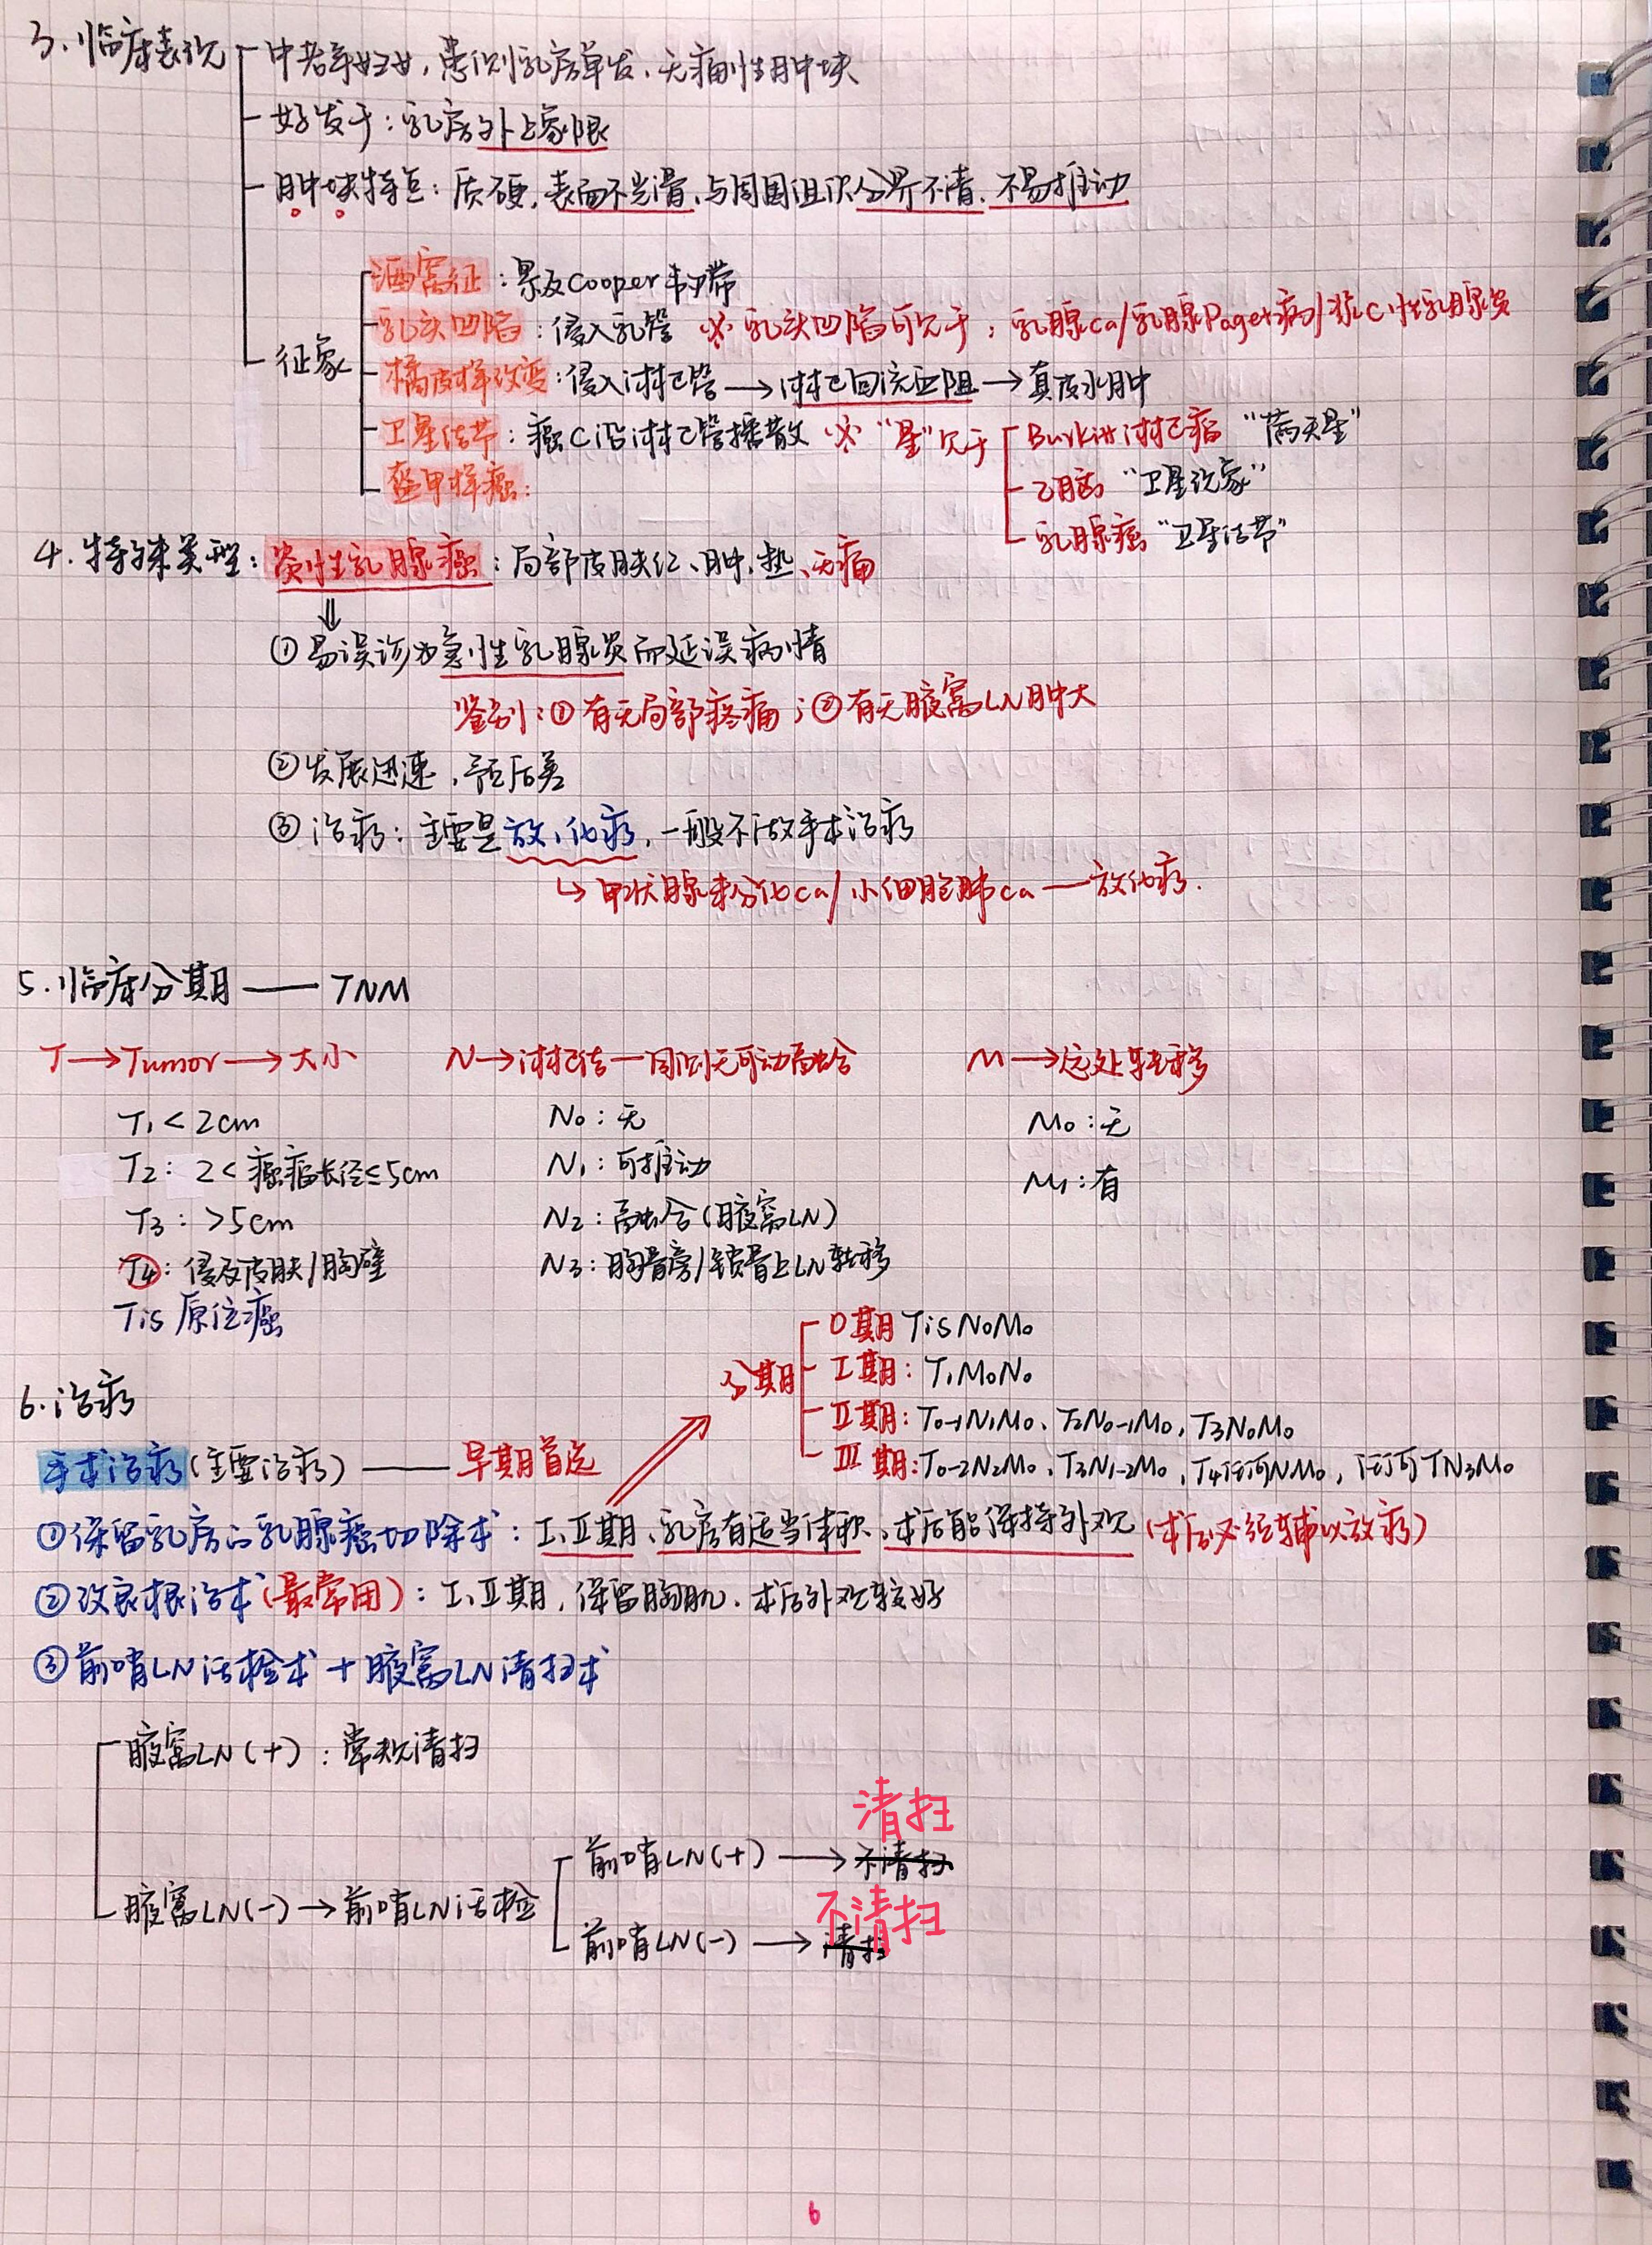 3.临床表现
中老年妇女,患侧乳房单发、无痛性肿块
好发于:乳房外上象限
肿块特点:质硬,表面不光滑,与周围组织分界不清.不易推动
征象
酒窝征:累及Cooper韧带
乳头凹陷:侵入乳管 ※ 乳头凹陷可见于:乳腺ca/乳腺Paget病/浆C性乳腺炎
橘皮样改变:侵入淋巴管→淋巴回流受阻→真皮水肿
卫星结节:癌C沿淋巴管播散 ※ "星"见于
Burkitt淋巴瘤 "满天星"
乙脑 "卫星现象"
乳腺癌 "卫星结节"
盔甲样癌:
4.特殊类型:炎性乳腺癌:局部皮肤红、肿、热、无痛
⇓
①易误诊为急性乳腺炎而延误病情
鉴别:①有无局部疼痛;②有无腋窝LN肿大
②发展迅速,预后差
③治疗:主要是放、化疗,一般不做手术治疗
↳甲状腺未分化ca/小细胞肺ca—放化疗.
5.临床分期——TNM
T→Tumor→大小 N→淋巴结—同侧无可动融合 M→远处转移
T₁<2cm N₀:无 M₀:无
T₂:2<癌瘤长径≤5cm N₁:可推动 M₁:有
T₃:>5cm N₂:融合(腋窝LN)
T₄:侵及皮肤/胸壁 N₃:胸骨旁/锁骨上LN转移
Tis 原位癌
分期
0期 TisN₀M₀
Ⅰ期:T₁M₀N₀
Ⅱ期:T₀₋₁N₁M₀、T₂N₀₋₁M₀,T₃N₀M₀
Ⅲ期:T₀₋₂N₂M₀、T₃N₁₋₂M₀,T₄任何NM₀,任何TN₃M₀
6.治疗
手术治疗(主要治疗)——早期首选
①保留乳房的乳腺癌切除术:Ⅰ、Ⅱ期、乳房有适当体积、术后能保持外观(术后必须辅以放疗)
②改良根治术(最常用):Ⅰ、Ⅱ期,保留胸肌.术后外观较好
③前哨LN活检术+腋窝LN清扫术
腋窝LN(+):常规清扫
清扫
前哨LN(+)→不清扫
腋窝LN(-)→前哨LN活检
不清扫
前哨LN(-)→清扫
6